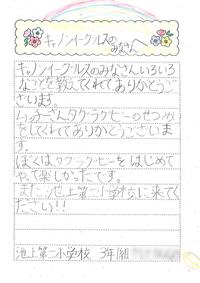 キャノンイーグルスの
みなさんへ
キャノンイーグルスのみなさんいろいろ
なことを教えてくれてありがとうござ
います。
ムッチーさんタグラグビーのせつめい
をしてくれてありがとうございま
す。
ぼくはタグラグビーをはじめて
やって楽しかったです。
また、池上第二小学校に来てく
ださい!!
池上第二小学校 3年 組